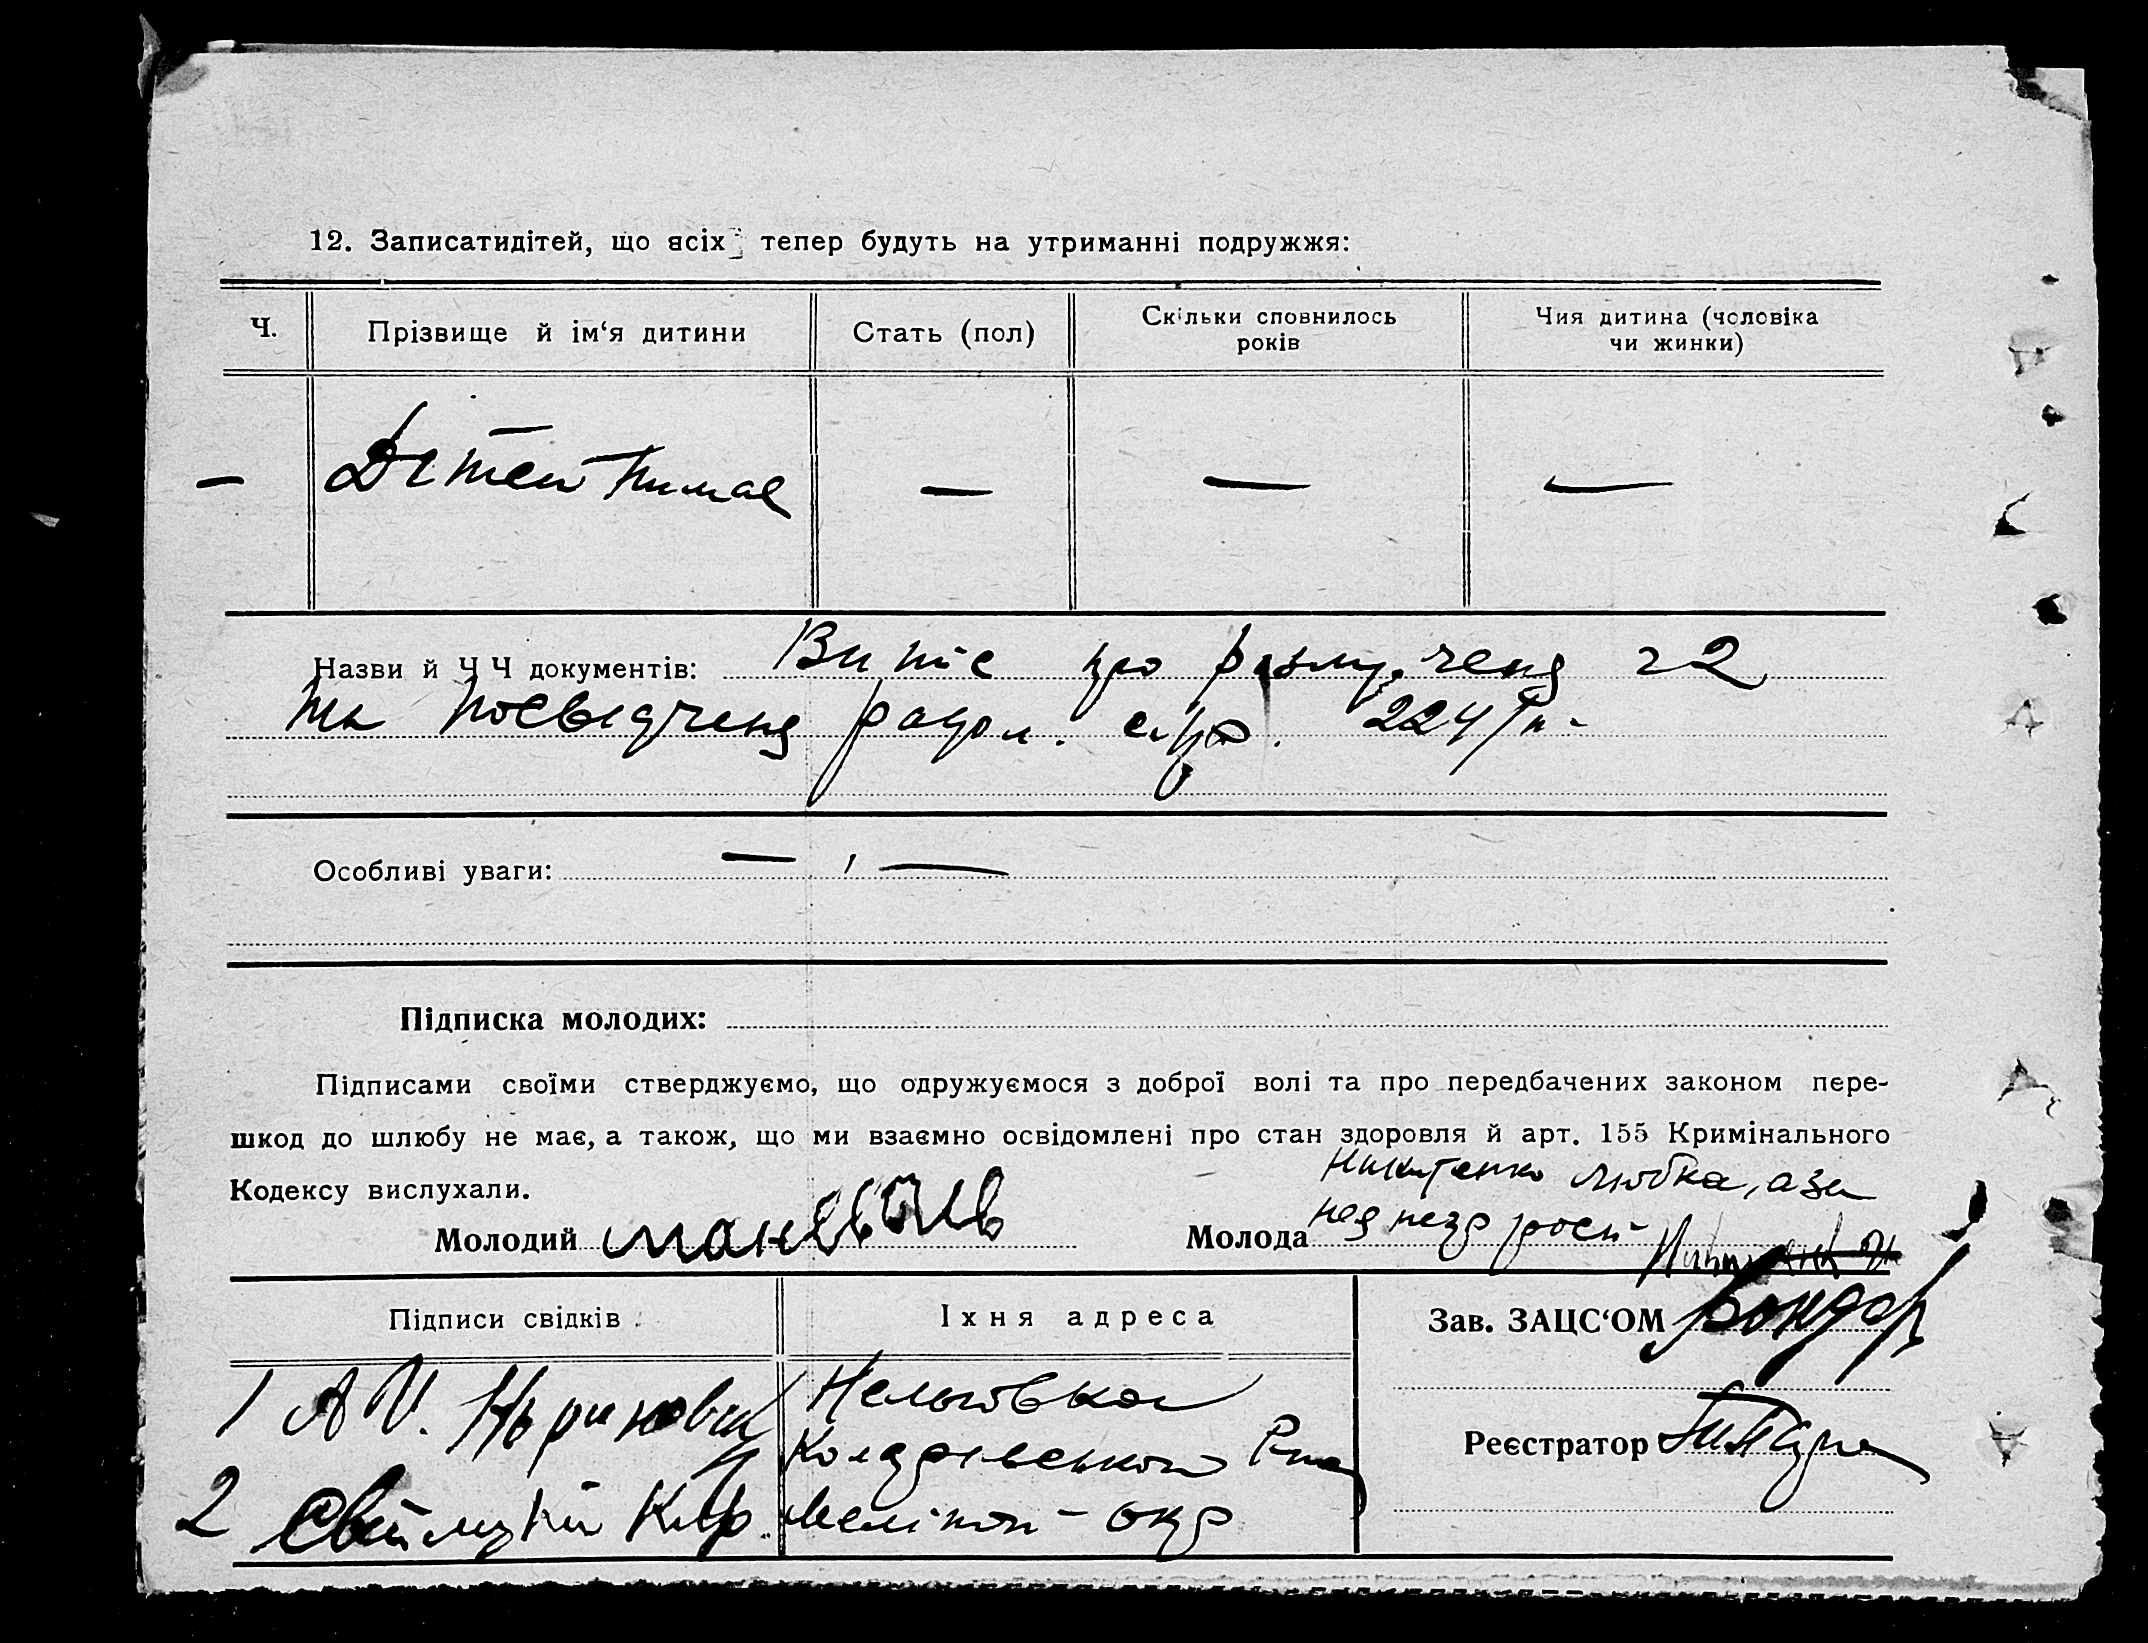 12. Записатидітей, що всіх тепер будуть на утриманні подружжя:
Ч.
Прізвище й ім‘я дитини
Стать (пол)
Скільки сповнилось
років
Чия дитина (чоловіка
чи жинки)
— Дітей нимає — — —
Назви й Ч Ч документів: Випіс про 22
та посвідченя 224/п-
Особливі уваги: — , —
Підписка молодих:
Підписами своїми стверджуємо, що одружуємося з доброї волі та про передбачених законом пере-
шкод до шлюбу не має, а також, що ми взаємно освідомлені про стан здоровля й арт. 155 Кримінального
Кодексу вислухали.
Никитенко Любка, а за
Молодий Молода
Підписи свідків
Їхня адреса
Зав. ЗАЦС‘ОМ Бондар
1
Реєстратор
2 Мелітоп- окр